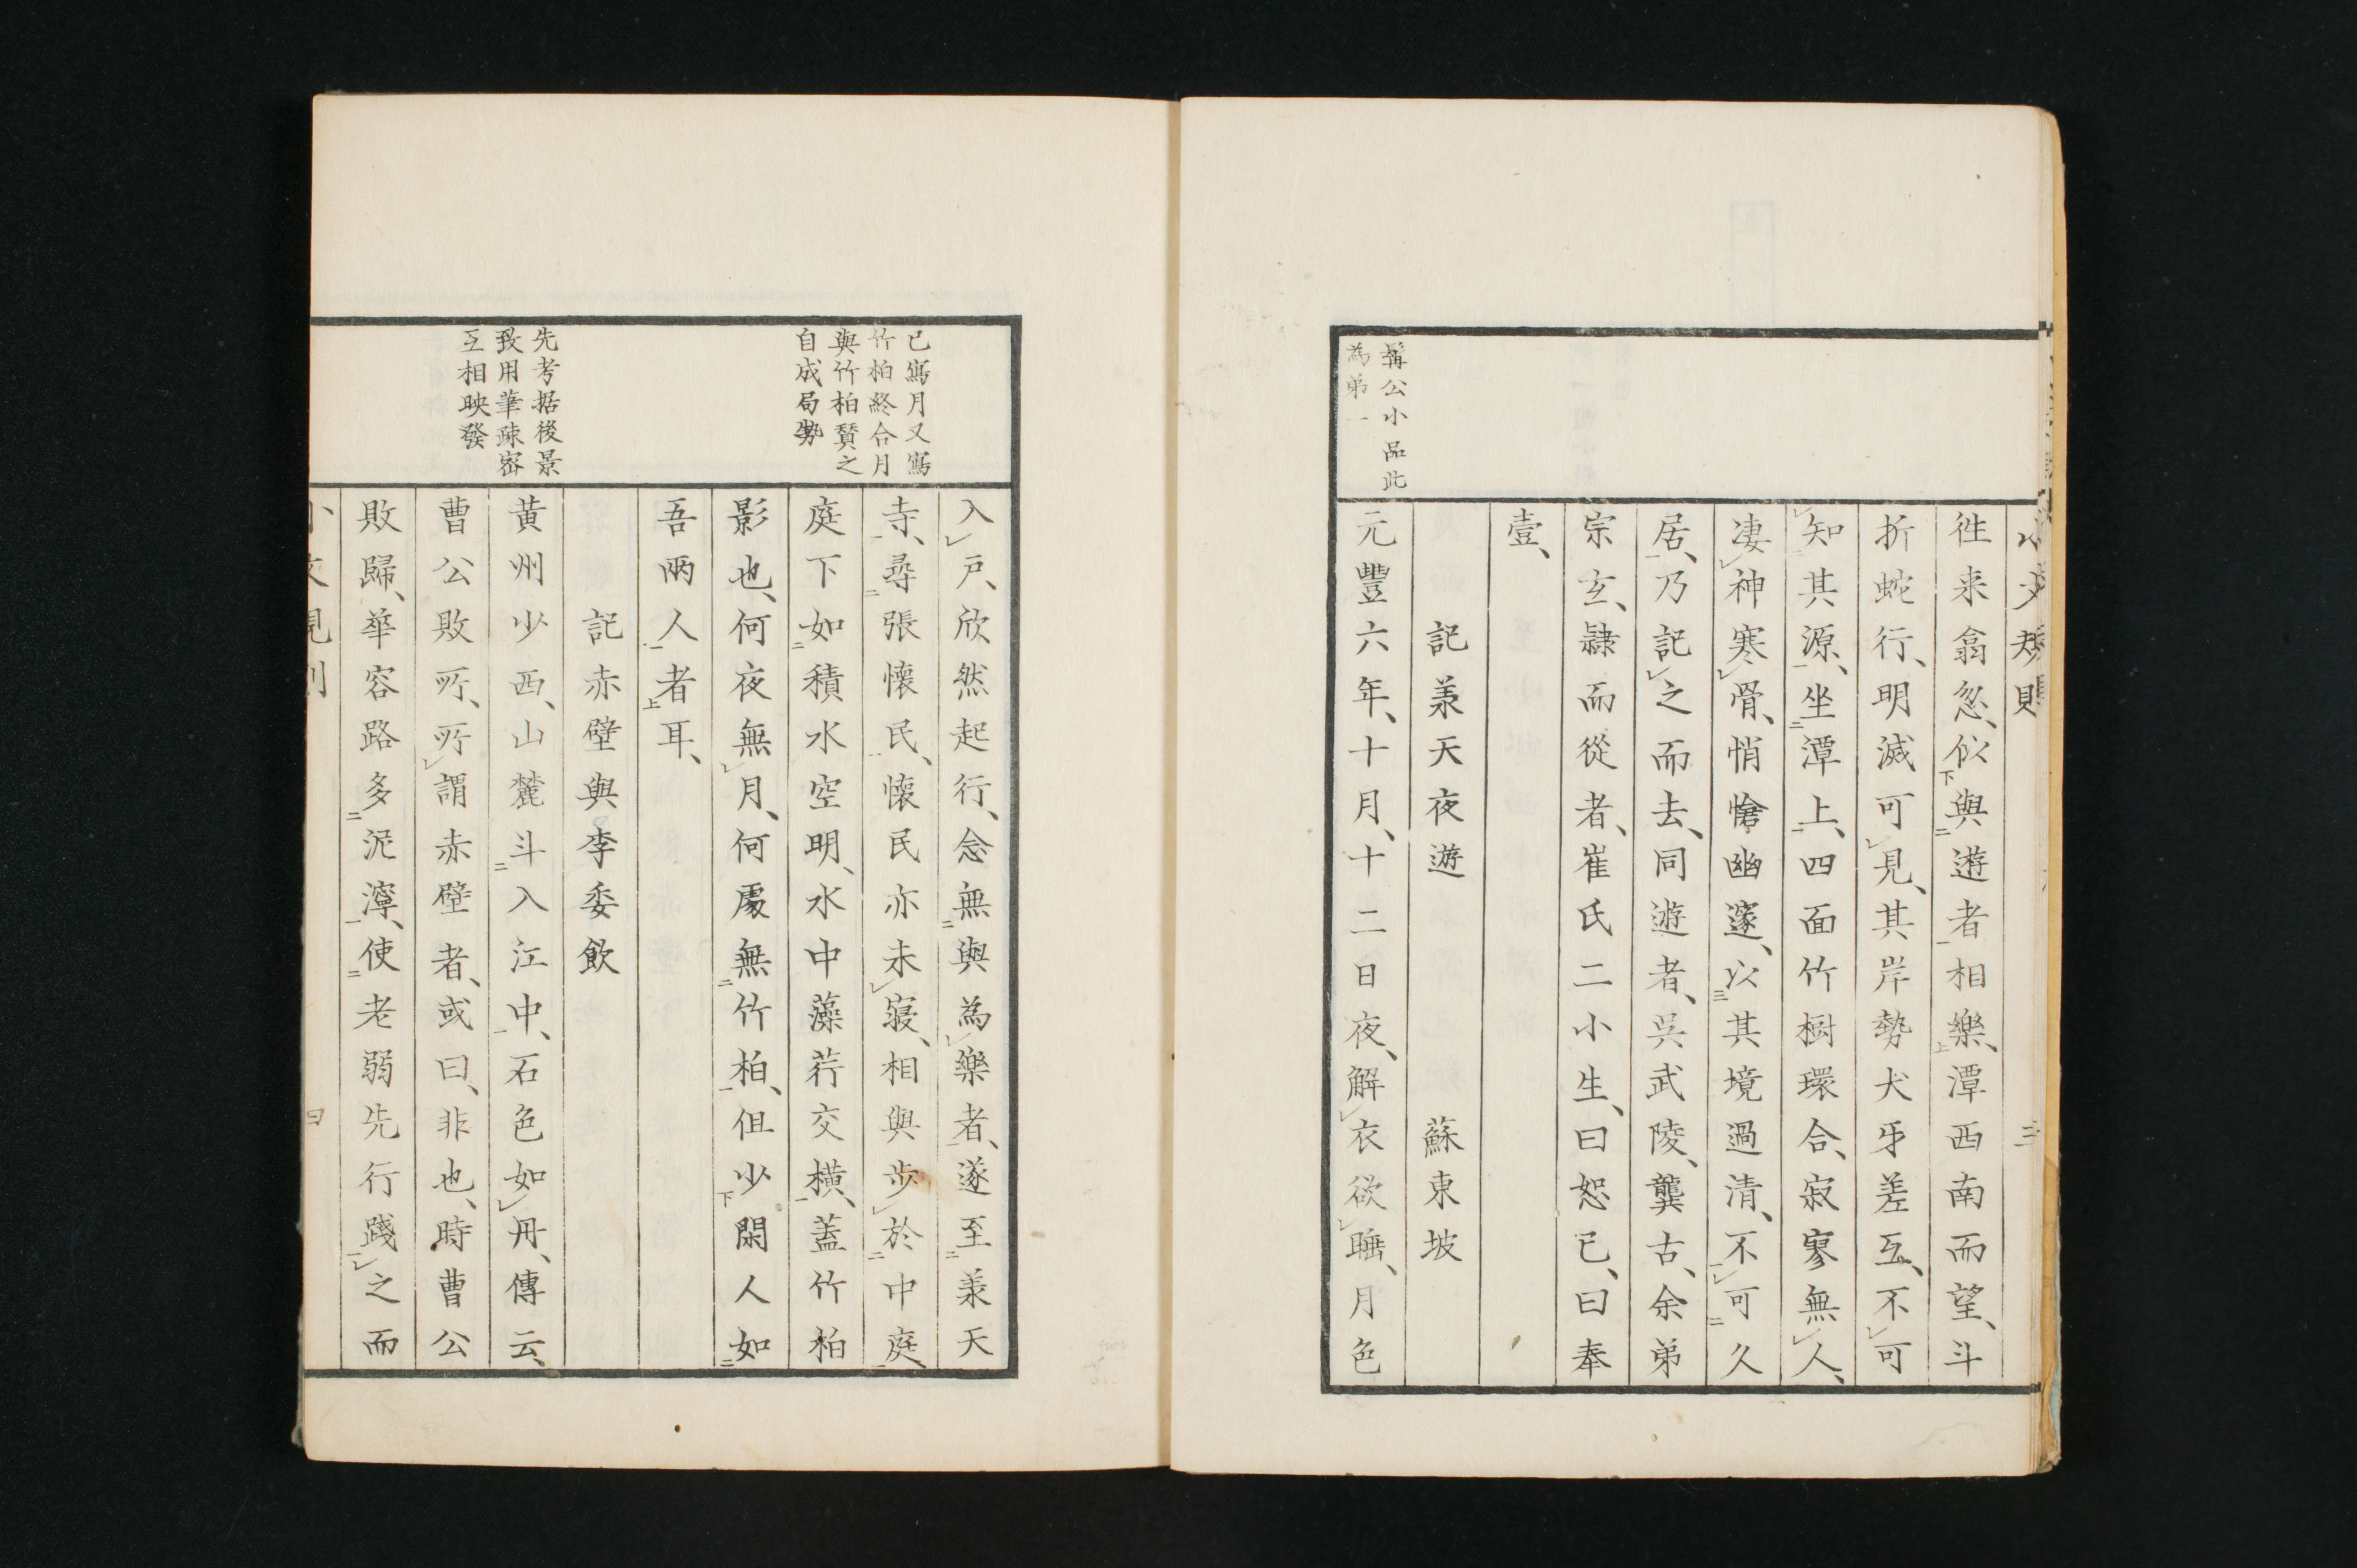 小文規則 三
徃来翕忽、似與遊者相樂、潭西南而望、斗
折蛇行、明滅可見、其岸勢犬牙差互、不可
知其源、坐潭上、四面竹樹環合、寂寥無人、
凄神寒骨、悄愴幽邃、以其境過清、不可久
居、乃記之而去、同遊者、吳武陵、龔古、余弟
宗玄、隷而從者、崔氏二小生、曰恕已、曰奉
壹、
記羕天夜遊 蘇東坡
元豐六年、十月、十二日夜、解衣欲睡、月色
髯公小品此
為弟一
入戶、欣然起行、念無與為樂者、遂至羕天
寺、尋張懷民、懷民亦未寢、相與步於中庭、
庭下如積水空明、水中藻荇交橫、蓋竹柏
影也、何夜無月、何處無竹柏、但少閑人如
吾兩人者耳、
記赤壁與李委飲
黄州少西、山麓斗入江中、石色如丹、傳云、
曹公敗所、所謂赤壁者、或曰、非也、時曹公
敗歸、華容路多泥濘、使老弱先行踐之而
已寫月又寫
竹柏終合月
與竹柏贊之
自成局勢
先考据後景
致用筆疎密
互相映發